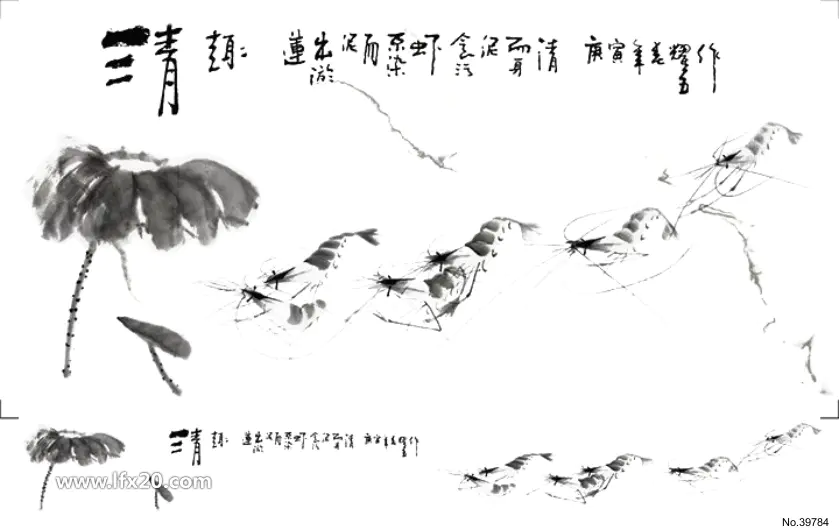 清趣 蓮出淤泥而不染 虾食污泥而身清 庚寅年春耀
清趣 蓮出淤泥而不染 虾食污泥而身清 庚寅年春耀
www.lfx20.com
No.39784